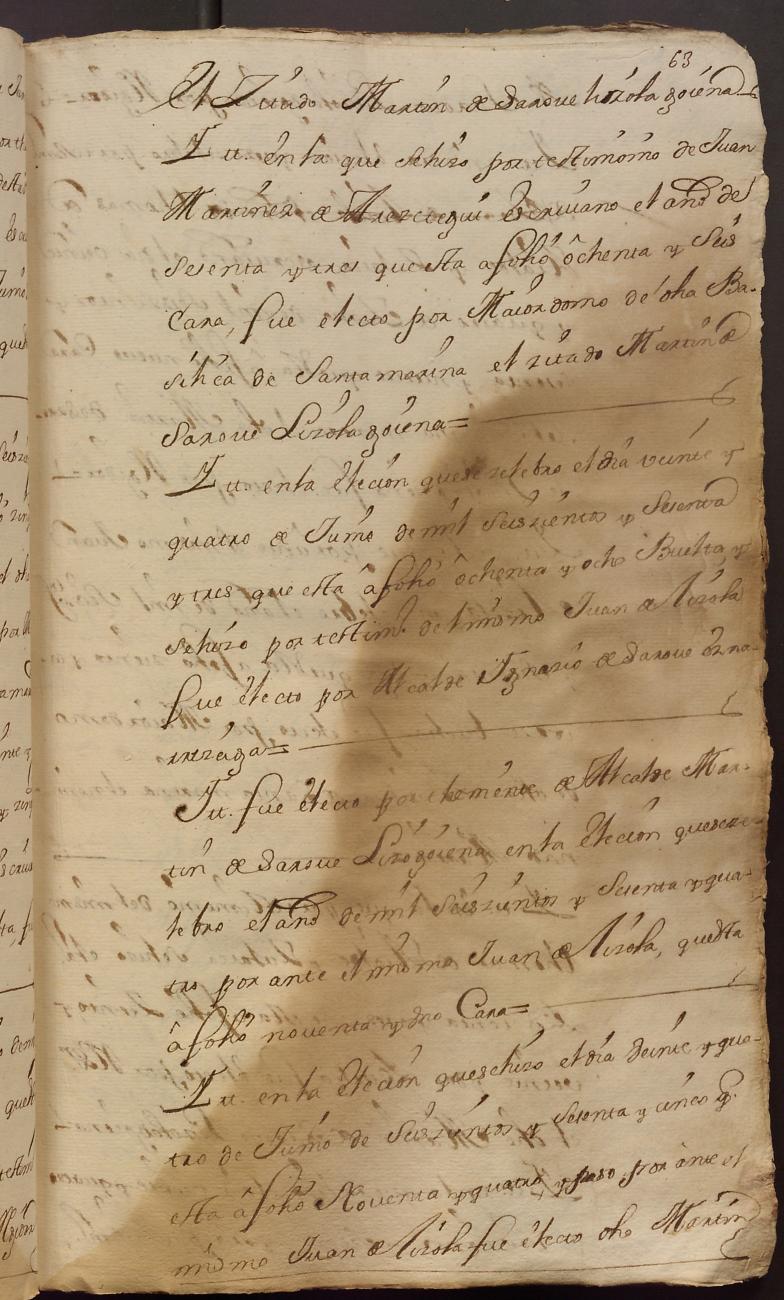 63
El Zitado Martin de Sarove lizola goiena
It. en la que se hizo por testimonio de Juan
Martinez de Arezteegui Escrivano el año de
sesenta y tres que esta a folio ochenta y seis
Cara, fue electo por Maiordomo de dha Ba-
silica de Santa marina el zitado Martin de
Sarove Lizola goiena=
It. en la elecion que se zelebro el dia veinte y
quatro de Junio de mil Seiszientos y Sesenta
y tres que esta a folio ochenta y ocho Buelta y
se hizo por testimo. del mismo Juan de Lizola
fue electo por Alcalde Ignazio de Sarove
It. fue electo por theniente de Alcalde Mar-
tin de Sarove Lizogoiena en la elecion que se ze-
lebro el año de mil Seiszientos y Sesenta y qua-
tro por ante el mismo Juan de Lizola, que esta
a folio noventa y dos Cara=
It. en la elecion que se hizo el dia veinte y qua-
tro de Junio de Seiszientos y Sesenta y cinco q.
esta a folio Noventa y quatro, y paso por ante el
mismo Juan de Lizola fue electo dho Martin